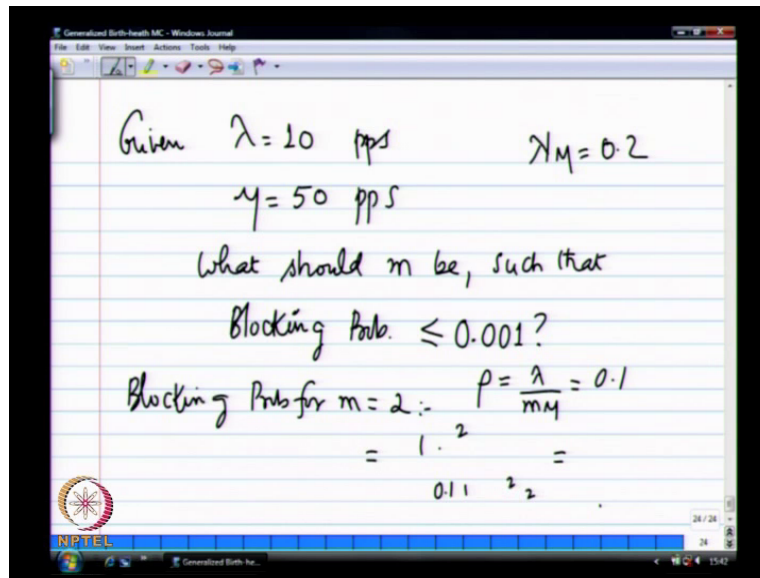 Generalized Birth-heath MC - Windows Journal
File Edit View Insert Actions Tools Help
Given λ = 10 pps λ/μ = 0.2
μ = 50 pps
What should m be, such that
Blocking Prob. ≤ 0.001?
Blocking Prob for m = 2 :- ρ = λ/mμ = 0.1
= 1 . 2 =
0.11 2 2
24 / 24
24
NPTEL
Generalized Birth-he...
15:42